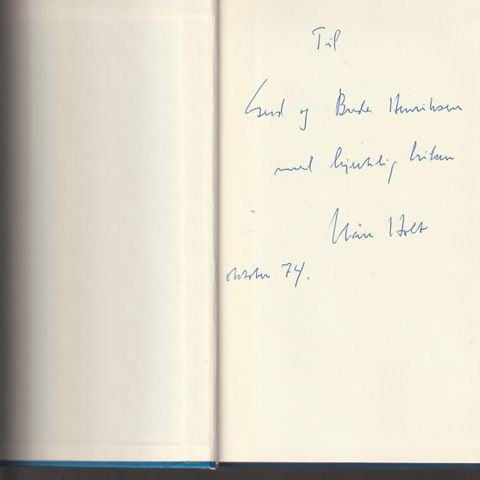 Til
og Henriksen
med hjertelig hilsen
Kåre Holt
oktober 74.